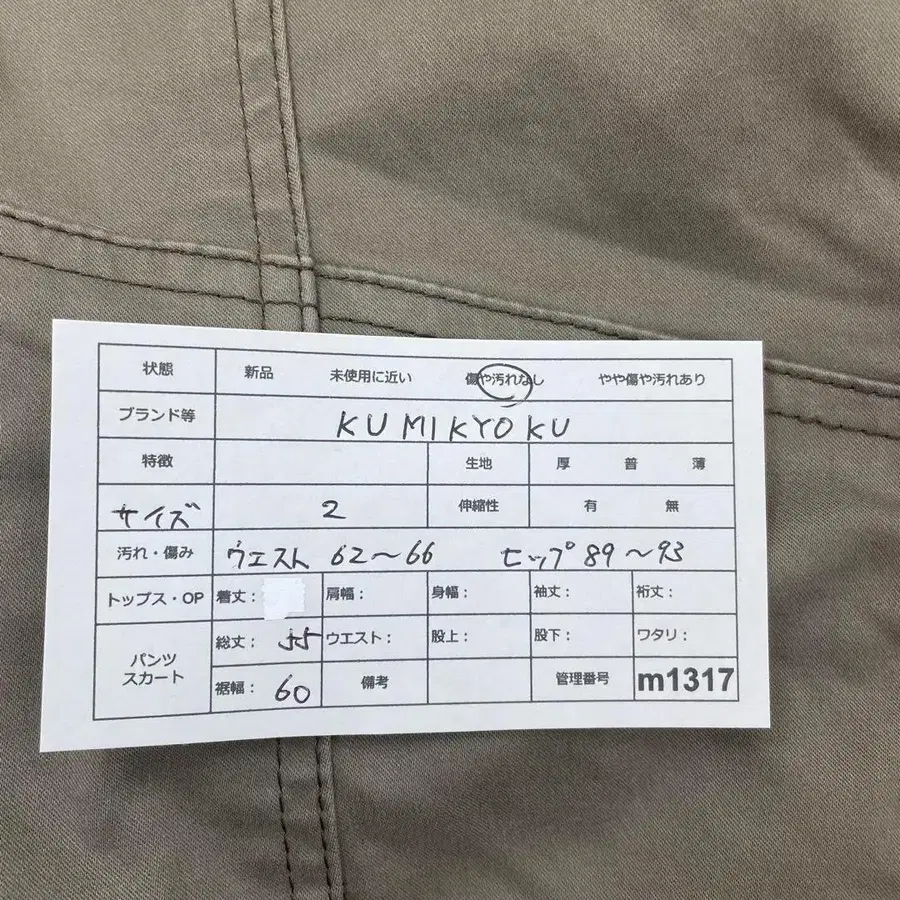 状態 新品 未使用に近い 傷や汚れなし やや傷や汚れあり
ブランド等 KUMIKYOKU
特徴 生地 厚 普 薄
サイズ 2 伸縮性 有 無
汚れ・傷み ウエスト 62〜66 ヒップ 89〜93
トップス・OP 着丈: 肩幅: 身幅: 袖丈: 裄丈:
パンツ スカート 総丈: 55 ウエスト: 股上: 股下: ワタリ:
裾幅: 60 備考 管理番号 m1317